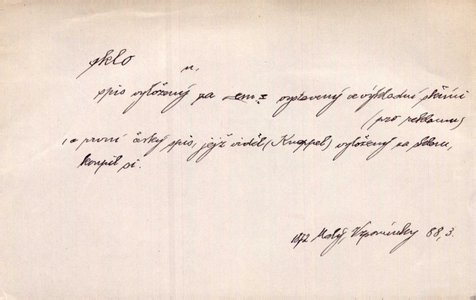 sklo
n.
spis vyložený za sklem = vystavený ve výkladní skříni
(pro reklamu)
, a první český spis, jejž viděl (Knappe) vyložený za sklem,
koupil si.
1872 Malý, Vzpomínky 68, 3.